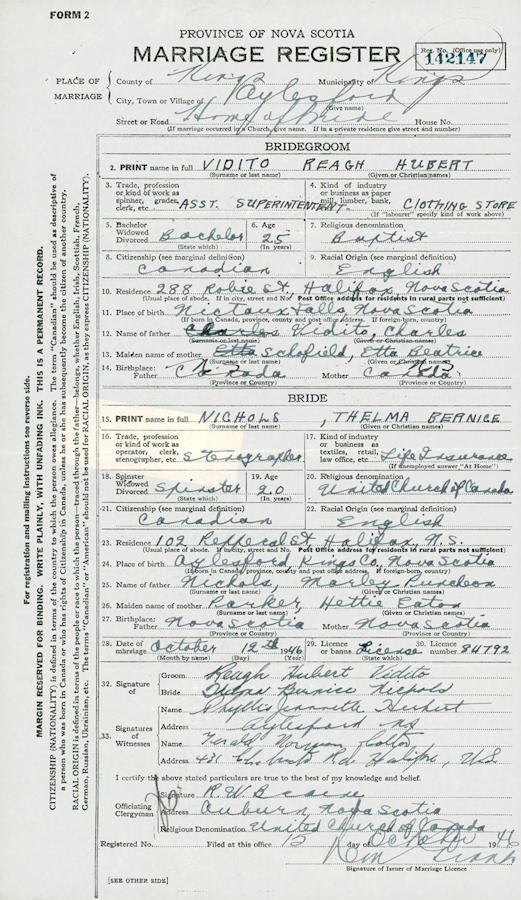 FORM 2
PROVINCE OF NOVA SCOTIA
MARRIAGE REGISTER
Reg. No. (Office use only)
142147
PLACE OF MARRIAGE
County of Kings Municipality of Kings
City, Town or Village of Aylesford
(Give name)
Street or Road Home of Bride House No.
(If marriage occurred in a Church, give name. If in a private residence give street and number)
BRIDEGROOM
2. PRINT name in full VIDITO REAGH HUBERT
(Surname or last name) (Given or Christian names)
3. Trade, profession or kind of work as spinner, grades, clerk, etc. ASST. SUPERINTENDENT
4. Kind of industry or business as paper mill, lumber, bank, CLOTHING STORE
(If "labourer" specify kind of work above)
5. Bachelor Widowed Divorced Bachelor (State which)
6. Age 25 (In years)
7. Religious denomination Baptist
8. Citizenship (see marginal definition) Canadian
9. Racial Origin (see marginal definition) English
10. Residence 288 Robie St. Halifax, Nova Scotia
(Usual place of abode. If in city, street and No. Post Office address for residents in rural parts not sufficient)
11. Place of birth Nictaux Falls, Nova Scotia
(If born in Canada, province, county and post office address. If foreign-born, country)
12. Name of father Charles Vidito, Charles
(Surname or last name) (Given or Christian names)
13. Maiden name of mother Etta Schofield, Etta Beatrice
(Surname or last name) (Given or Christian names)
14. Birthplace: Father Canada Mother Canada
(Province or Country) (Province or Country)
BRIDE
15. PRINT name in full NICHOLS, THELMA BERNICE
(Surname or last name) (Given or Christian names)
16. Trade, profession or kind of work as operator, clerk, stenographer, etc. Stenographer
17. Kind of industry or business as textiles, retail, law office, etc. Life Insurance
(If unemployed answer "At Home")
18. Spinster Widowed Divorced Spinster (State which)
19. Age 20 (In years)
20. Religious denomination United Church of Canada
21. Citizenship (see marginal definition) Canadian
22. Racial Origin (see marginal definition) English
23. Residence 102 St Halifax, N.S.
(Usual place of abode. If in city, street and No. Post Office address for residents in rural parts not sufficient)
24. Place of birth Aylesford Kings Co. Nova Scotia
(If born in Canada, province, county and post office address. If foreign-born, country)
25. Name of father Nichols, Morley Puncheon
(Surname or last name) (Given or Christian names)
26. Maiden name of mother Parker Hettie Eaton
(Surname or last name) (Given or Christian names)
27. Birthplace: Father Nova Scotia Mother Nova Scotia
(Province or Country) (Province or Country)
28. Date of marriage October 12th 1946
(Month by name) (Day) (Year)
29. Licence or banns License
30. Licence number 84792
32. Signature of
Groom Reagh Hubert Vidito
Bride Thelma Bernice Nichols
33. Signatures of Witnesses
Name Phyllis Herbert
Address Aylesford NS
Name Norman
Address 431 Rd. Halifax, N.S.
I certify the above stated particulars are true to the best of my knowledge and belief.
Officiating Clergyman
Signature R.W.
Address Auburn, Nova Scotia
Religious Denomination United Church of Canada
Registered No. Filed at this office 15 day of October 1946
Signature of Issuer of Marriage Licence
[SEE OTHER SIDE]
For registration and mailing instructions see reverse side.
MARGIN RESERVED FOR BINDING. WRITE PLAINLY, WITH UNFADING INK. THIS IS A PERMANENT RECORD.
CITIZENSHIP (NATIONALITY) is defined in terms of the country to which the person owes allegiance. The term "Canadian" should be used as descriptive of
a person who was born in Canada or who has rights of Citizenship in Canada, unless he or she has subsequently become the citizen of another country.
RACIAL ORIGIN is defined in terms of the people or race to which the person—traced through the father—belongs, whether English, Irish, Scottish, French,
German, Russian, Ukrainian, etc. The terms "Canadian" or "American" should not be used for RACIAL ORIGIN, as they express CITIZENSHIP (NATIONALITY).